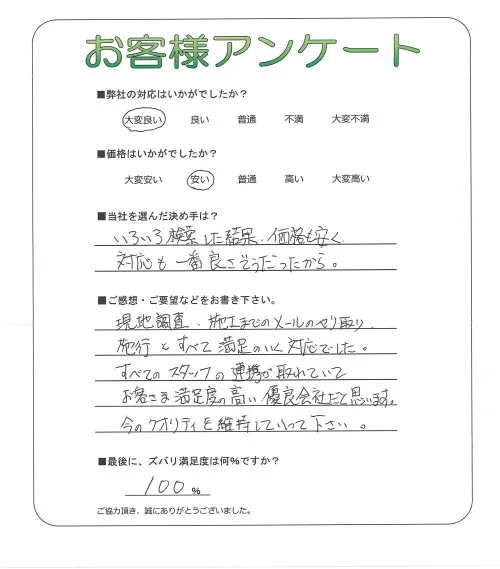 お客様アンケート
■弊社の対応はいかがでしたか?
大変良い 良い 普通 不満 大変不満
■価格はいかがでしたか?
大変安い 安い 普通 高い 大変高い
■当社を選んだ決め手は?
いろいろ検索した結果、価格も安く
対応も一番良さそうだったから。
■ご感想・ご要望などをお書き下さい。
現地調査、施工までのメールのやり取り、
施行とすべて満足のいく対応でした。
すべてのスタッフの連携が取れていて
お客さま満足度の高い優良会社だと思います。
今のクオリティを維持していって下さい。
■最後に、ズバリ満足度は何%ですか?
100%
ご協力頂き、誠にありがとうございました。